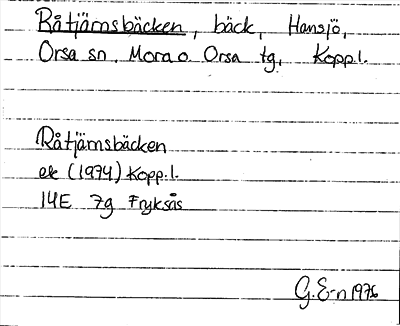 Råtjärnsbäcken, bäck, Hansjö,
Orsa sn. Mora o. Orsa tg, Kopp.l.
Råtjärnsbäcken
ek (1974) Kopp.l.
14E 7g Fryksås
G.E-n 1976